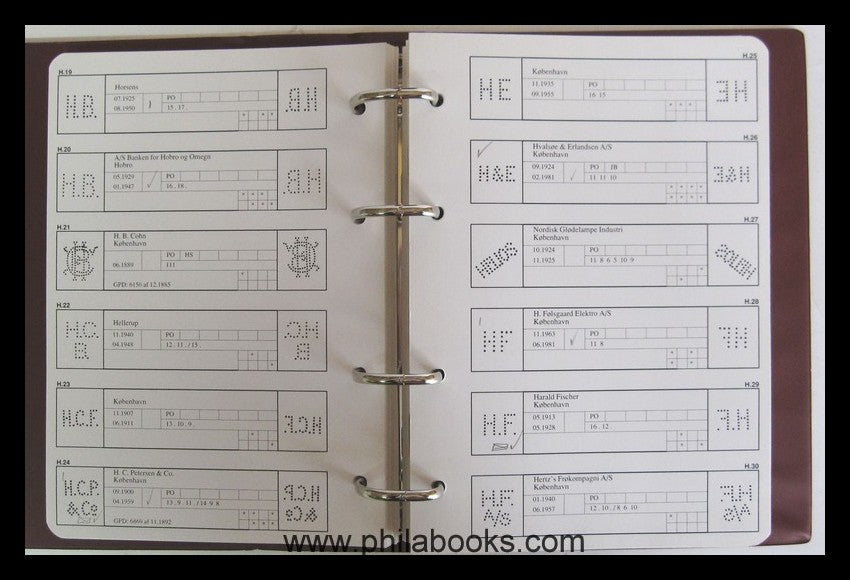 H.19
Horsens
H.B.
07.1925
08.1950
}
PO
15 . 17 .
H.20
A/S Banken for Hobro og Omegn
Hobro
H.B.
05.1929
01.1947
PO
16 . 18 .
H.21
H. B. Cohn
København
06.1889
PO HS
111
GPD: 6156 af 12.1885
H.22
Hellerup
H.C.
B.
11.1940
04.1948
PO
12 . 11 . / 15 .
H.23
København
H.C.F.
11.1907
06.1911
PO
13 . 10 . 9 .
H.24
H. C. Petersen & Co.
København
H.C.P.
& Co
09.1909
04.1959
PO
13 . 9 . 11 . / 14 9 8
GPD: 6469 af 11.1892
H.25
København
HE
11.1935
09.1955
PO
16 15
H.26
Hvalsøe & Erlandsen A/S
København
H&E
09.1924
02.1981
PO JB
11 11 10
H.27
Nordisk Glødelampe Industri
København
HELIOS
10.1924
11.1925
PO
11 8 6 5 10 9
H.28
H. Følsgaard Elektro A/S
København
HF
11.1963
06.1981
PO
11 8
H.29
Harald Fischer
København
H.F.
05.1913
05.1928
PO
16 . 12 .
H.30
Hertz's Frøkompagni A/S
København
H.F.
A/S
01.1940
06.1957
PO
12 . 10 . / 8 6 10
www.philabooks.com